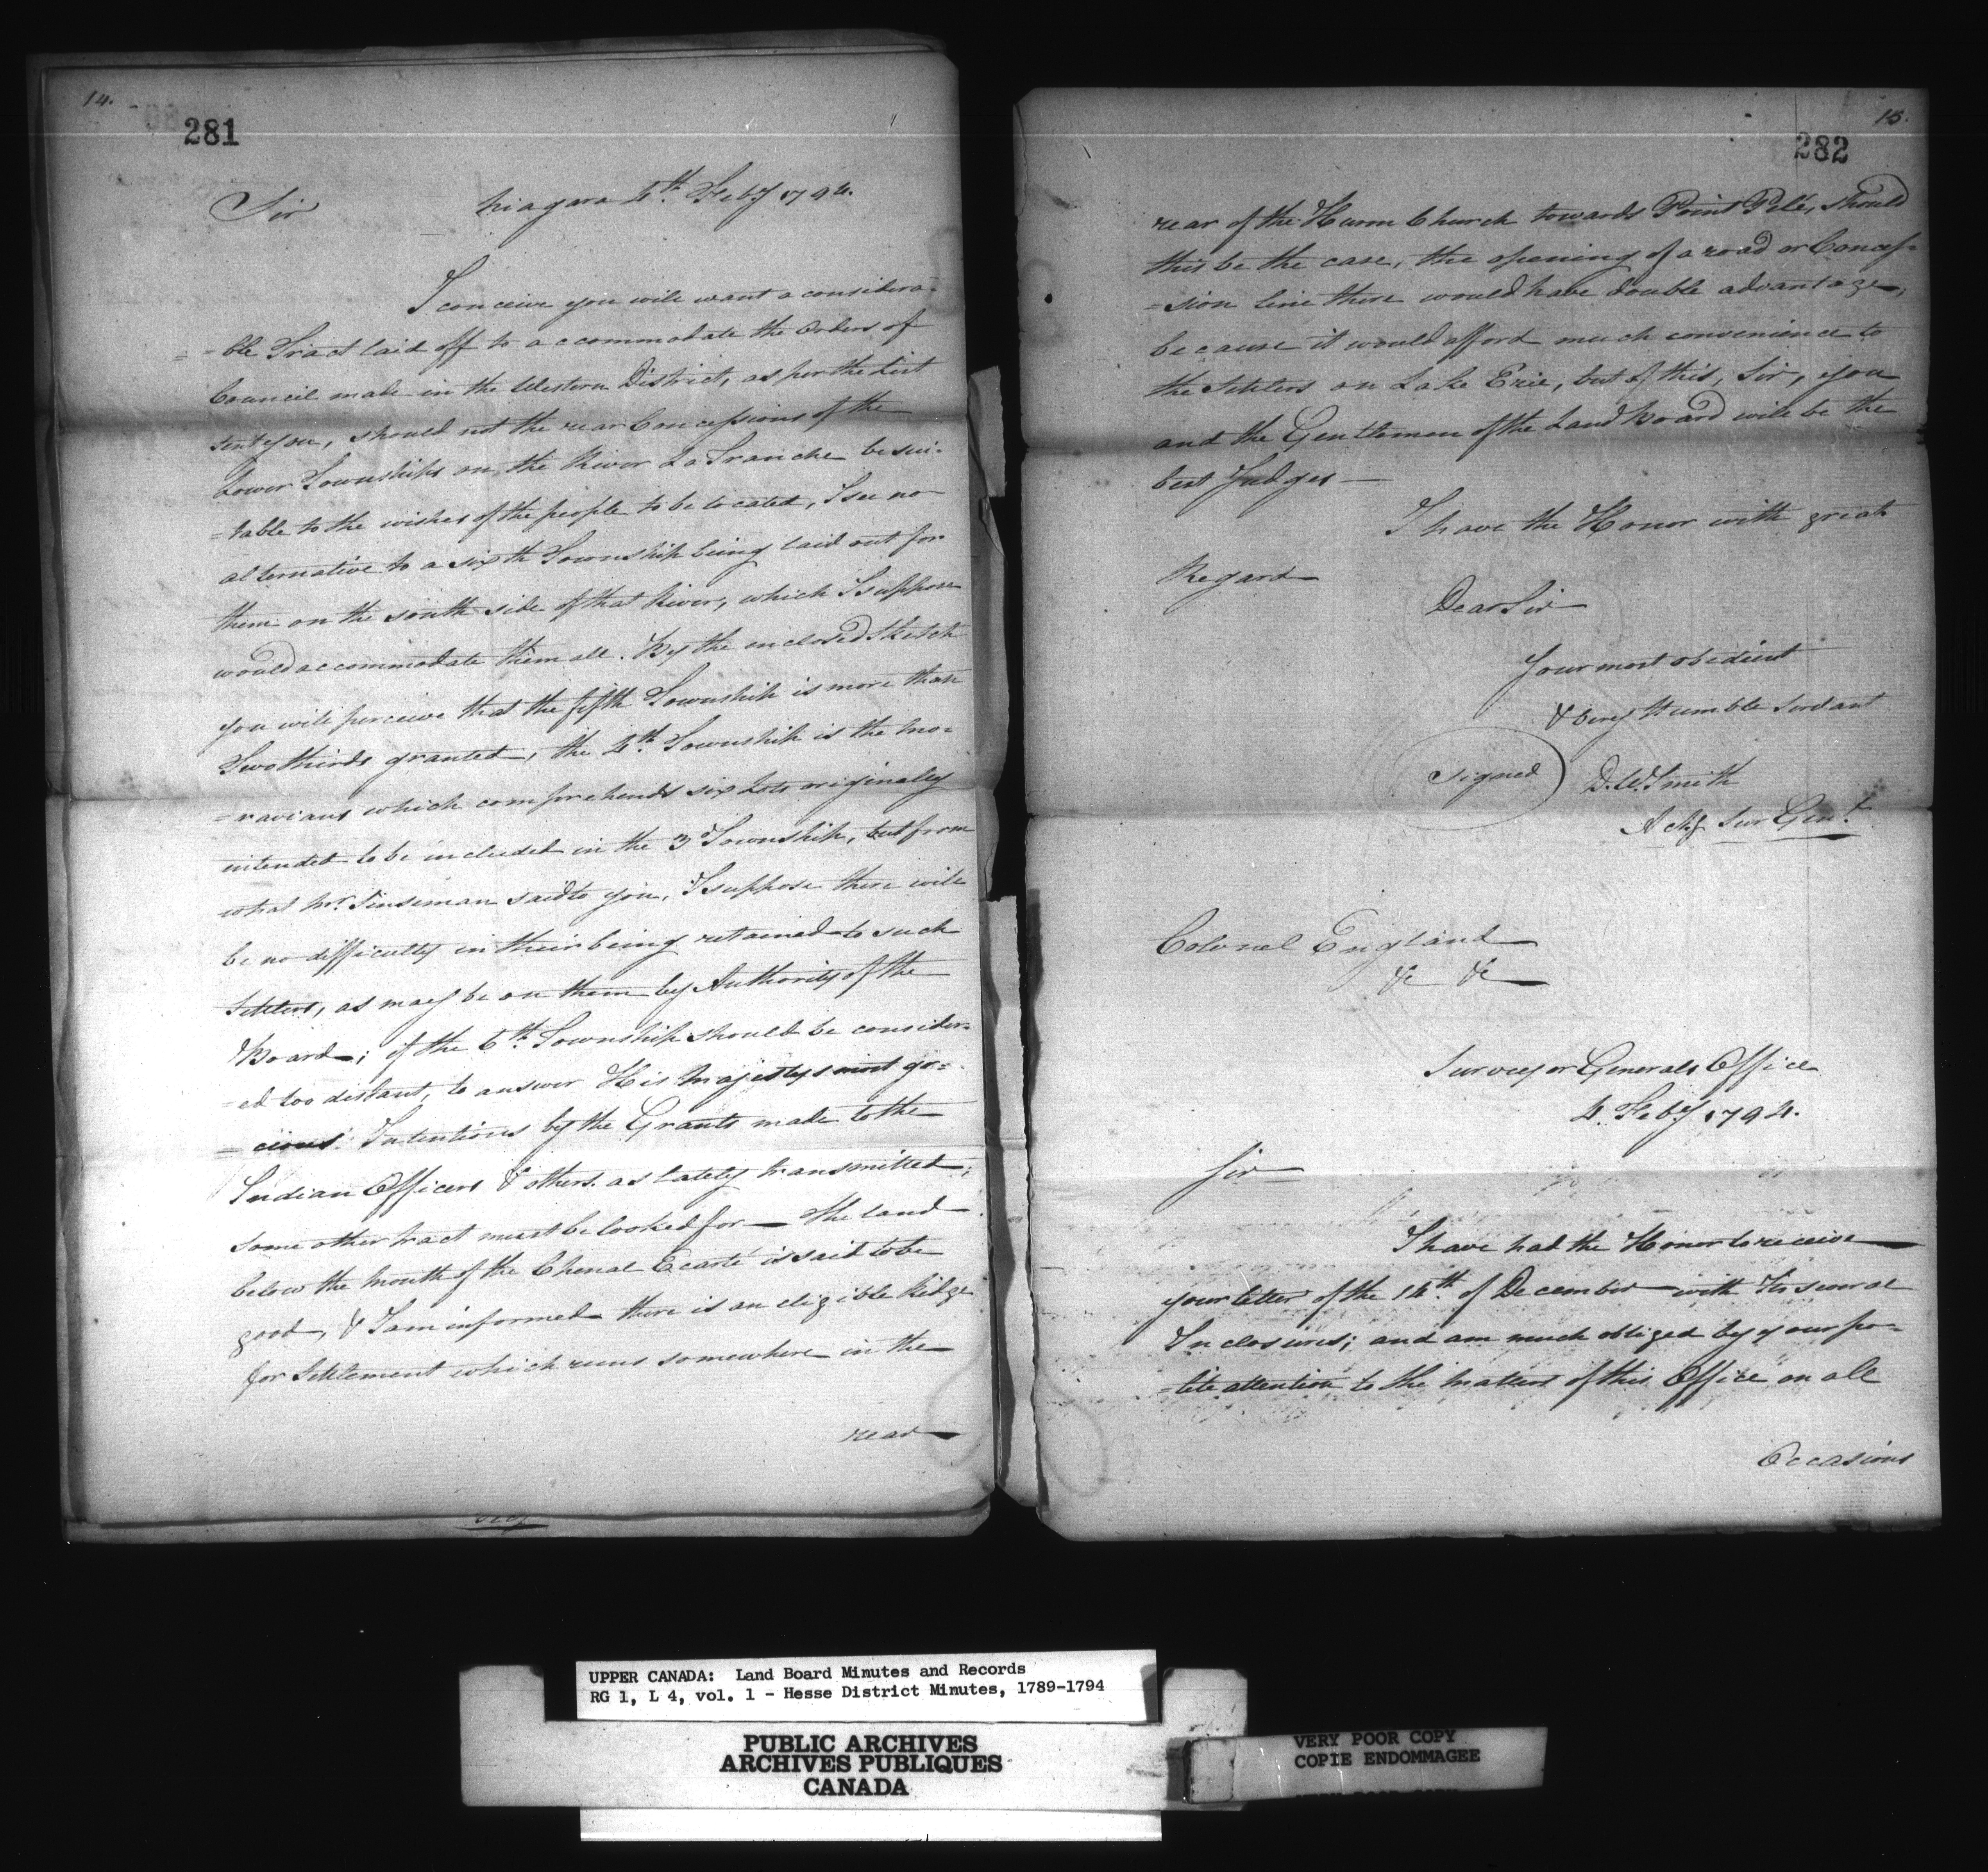 14.
281
Sir Niagara 4th. Feby 1794.
I conceive you will want a considera-
=ble Tract laid off to accommodate the Orders of
Council made in the Western District, as per the List
sent you, should not the rear Concessions of the
Lower Townships on the River La Tranche be sui-
=table to the wishes of the people to be located, I see no
alternative to a sixth Township being laid out for
them on the south side of that River, which I suppose
would accommodate them all. By the enclosed Sketch
you will perceive that the fifth Township is more than
Two thirds granted, the 4th. Township is the Mo-
=ravians which comprehends six Lots originally
intended to be included in the 3d Township, but from
what Mr. Sinseman said to you, I suppose there will
be no difficulty in their being retained to such
Settlers, as may be on them by Authority of the
Board; if the 6th. Township should be consider-
=ed too distant, to answer His Majestys most gra=
=cious Intentions by the Grants made to the
Indian Officers & others as lately transmitted;
some other tract must be looked for — The land
below the mouth of the Chenal Ecarté is said to be
good, & I am informed there is an eligible Ridge
for Settlement which runs somewhere in the
rear
15.
282
rear of the Huron Church towards Point Pelé, should
this be the case, the opening of a road or Conces=
=sion line there would have double advantage,
because it would afford much convenience to
the Settlers on Lake Erie, but of this, Sir, you
and the Gentlemen of the Land Board will be the
best Judges —
I have the Honor with great
Regard
Dear Sir
Your most obedient
& very Humble Servant
Signed) D. W. Smith
Actg Sur Genl.
Colonel England
&c &c
Surveyor Generals Office
4. Feby 1794.
Sir
I have had the Honor to receive
your letter of the 14th. of December with its several
Inclosures; and am much obliged by your po=
=lite attention to the matters of this Office on all
Occasions
UPPER CANADA: Land Board Minutes and Records
RG 1, L 4, vol. 1 - Hesse District Minutes, 1789-1794
PUBLIC ARCHIVES
ARCHIVES PUBLIQUES
CANADA
VERY POOR COPY
COPIE ENDOMMAGEE